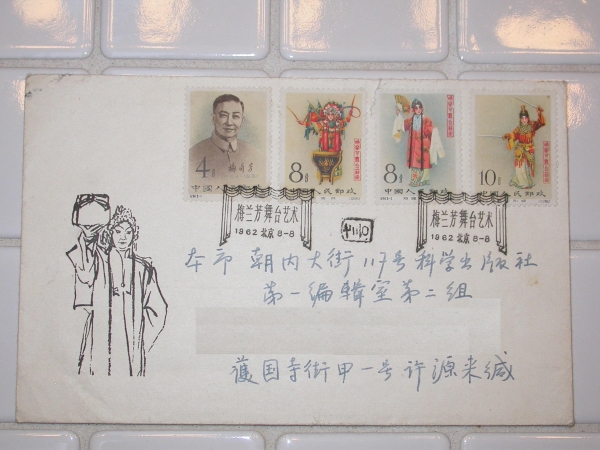 4分
8分
8分
10分
梅兰芳
中国人民邮政
中国人民邮政
中国人民邮政
中国人民邮政
梅兰芳舞台艺术
1962 北京 8-8
梅兰芳舞台艺术
1962 北京 8-8
本市 朝内大街117号科学出版社
第一编辑室第二组
護国寺街甲一号 许源来缄